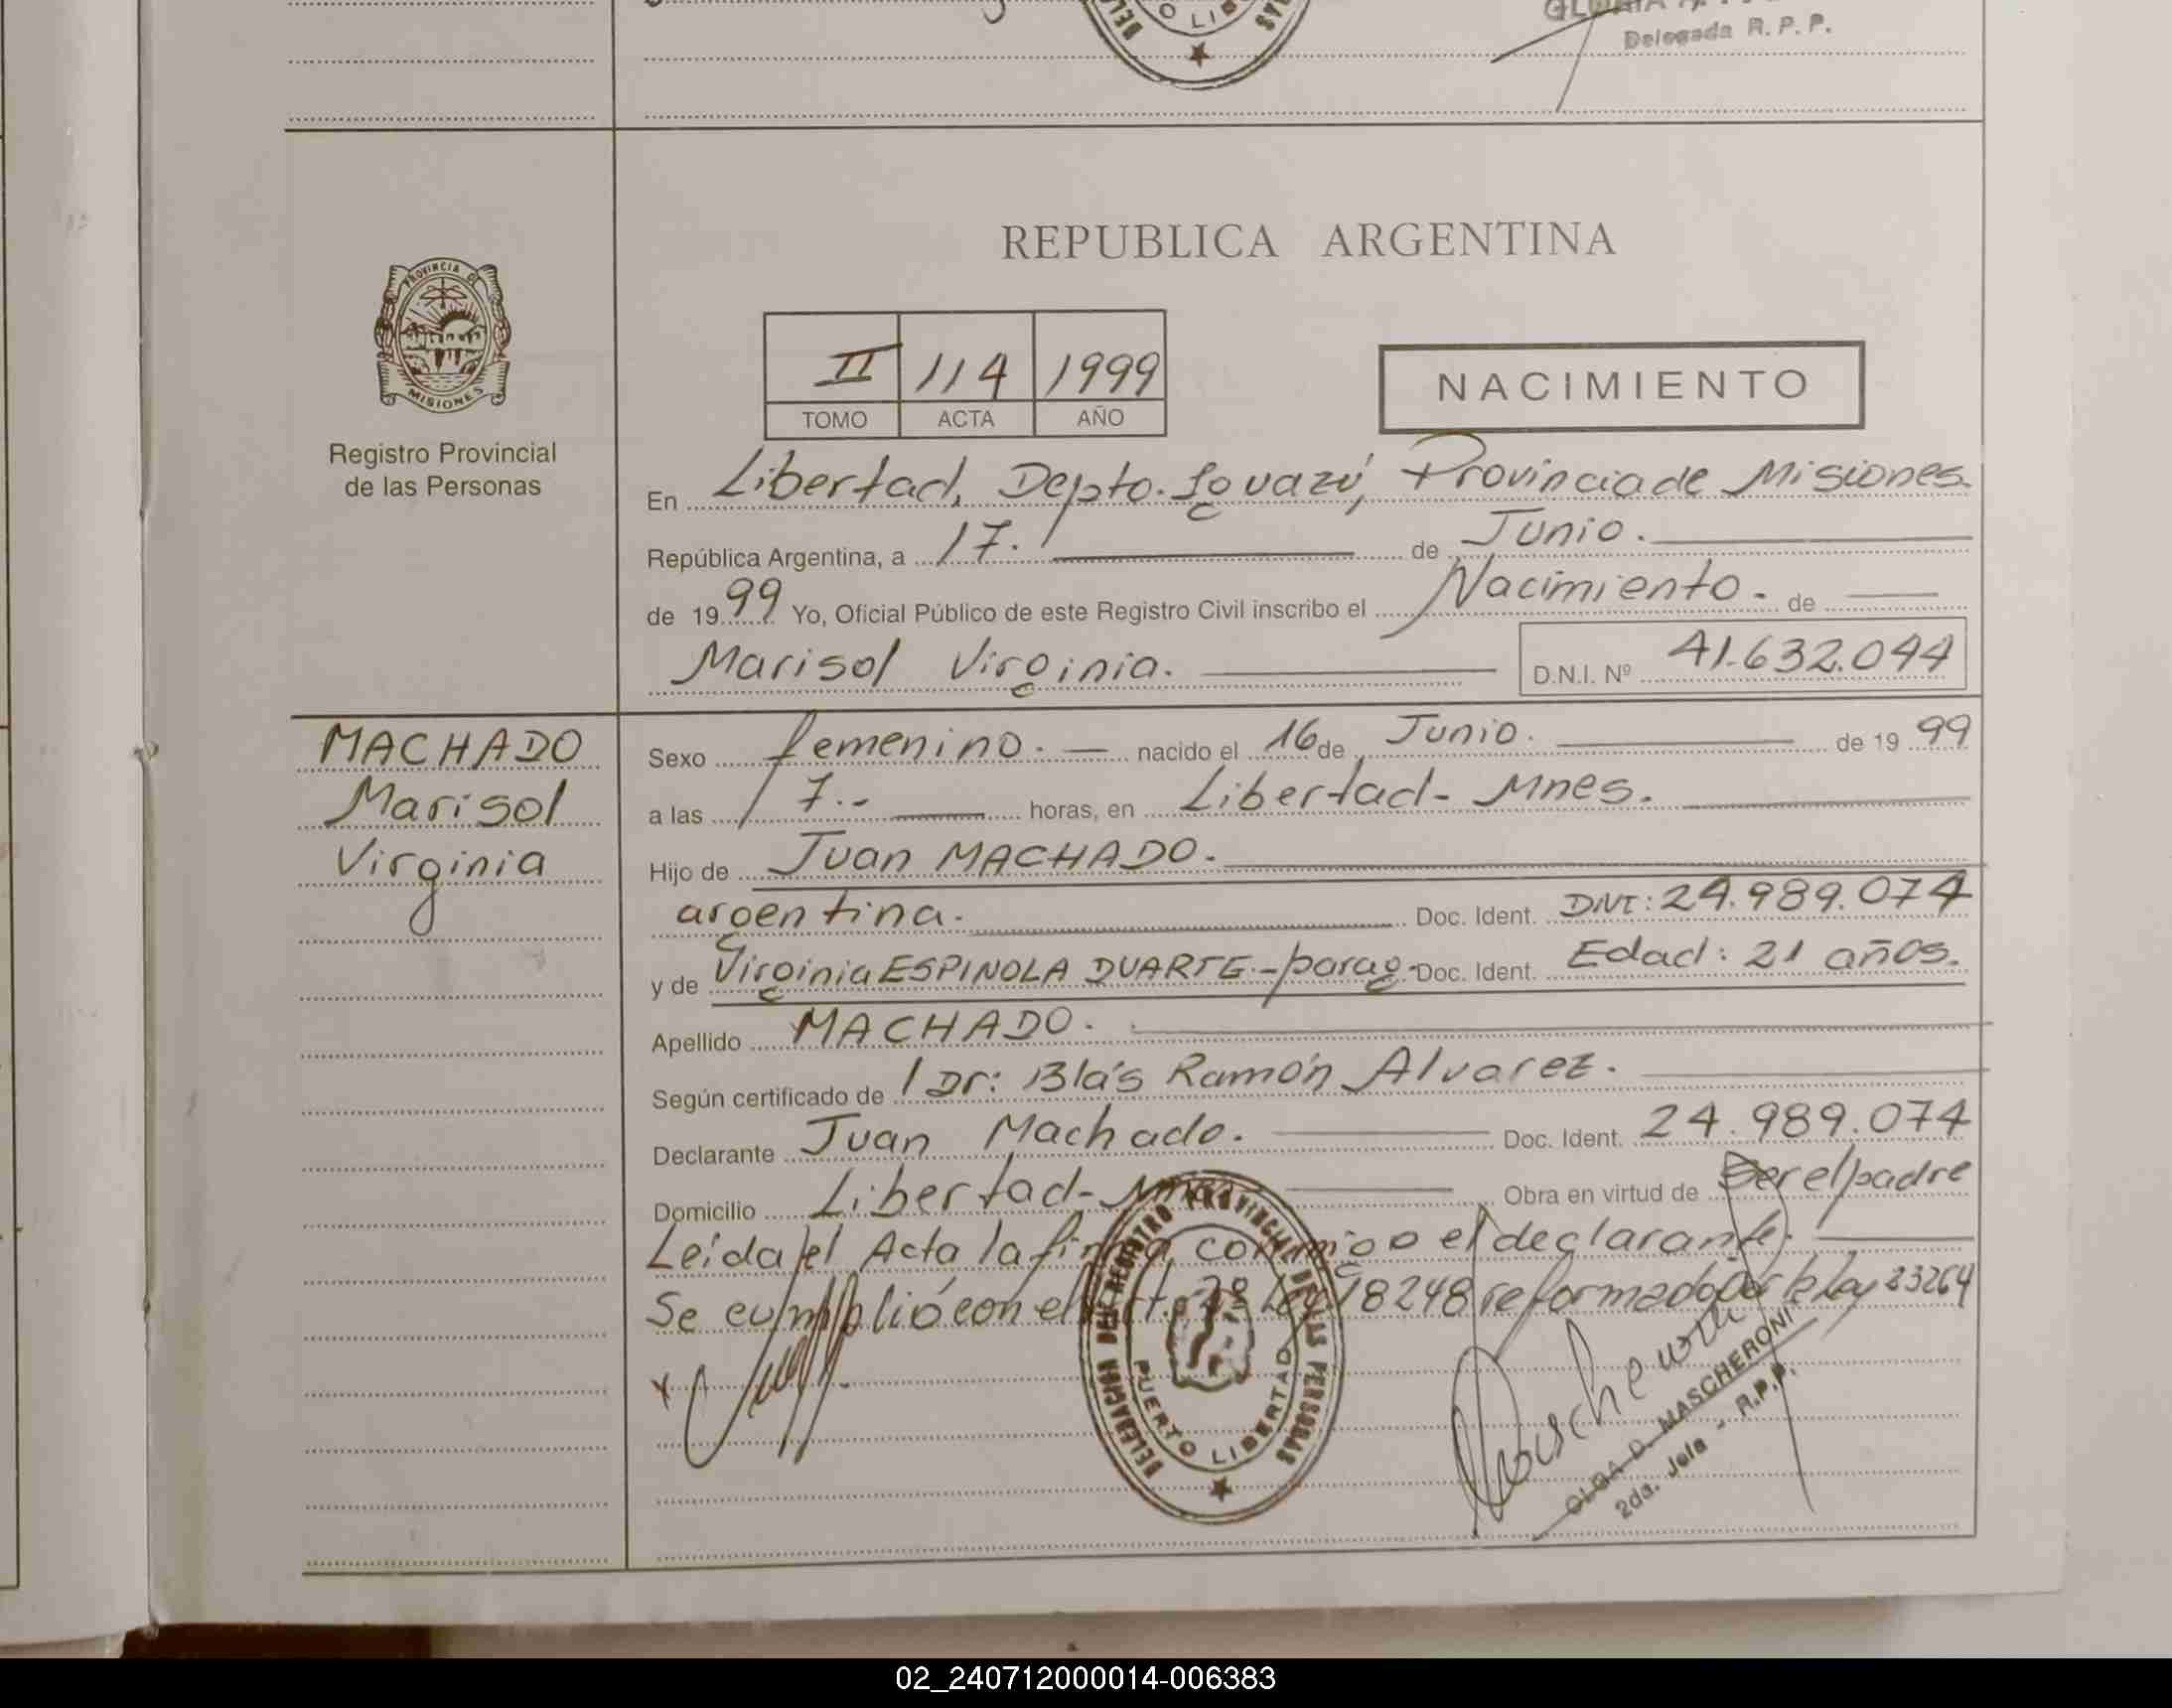 Delegada R. P. P.
REPUBLICA ARGENTINA
PROVINCIA DE
MISIONES
Registro Provincial
de las Personas
II 114 1999
TOMO ACTA AÑO
NACIMIENTO
En Libertad, Depto. Iguazú, Provincia de Misiones.
República Argentina, a 17. de Junio.
de 1999 Yo, Oficial Público de este Registro Civil inscribo el Nacimiento. de
Marisol Virginia. D.N.I. Nº 41.632.044
MACHADO
Marisol
Virginia
Sexo femenino. nacido el 16 de Junio. de 1999
a las 7.- horas, en Libertad- Mnes.
Hijo de Juan MACHADO.
argentina. Doc. Ident. DNI: 24.989.074
y de Virginia ESPINOLA DUARTE.-parag. Doc. Ident. Edad: 21 años.
Apellido MACHADO.
Según certificado de Dr: Blás Ramón Alvarez.
Declarante Juan Machado. Doc. Ident. 24.989.074
Domicilio Libertad- Mnes Obra en virtud de Ser el padre
Leída el Acta la firma conmigo el declarante.
Se cumplió con el Art. 2º Ley 18248 reformado por la Ley 23264
DELEGACION DEL REGISTRO PROVINCIAL DE LAS PERSONAS
PUERTO LIBERTAD
OLGA D. MASCHERONI
2da. Jefa - R.P.P.
02_240712000014-006383